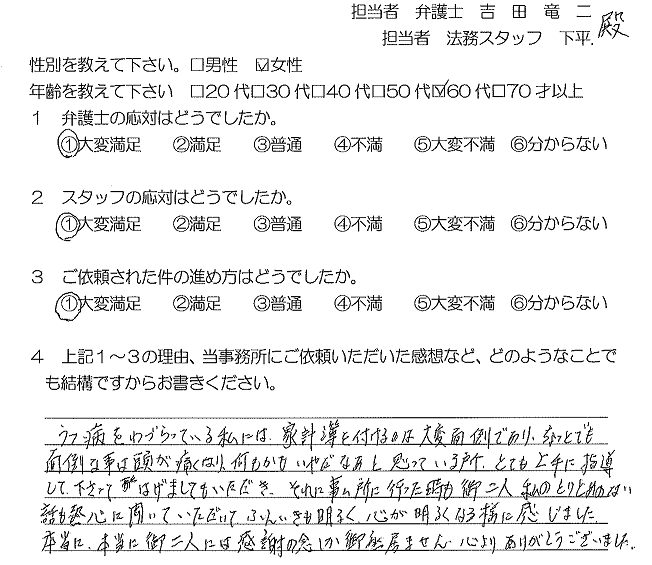 担当者 弁護士 吉田竜二
担当者 法務スタッフ 下平. 殿
性別を教えて下さい。□男性 ☑女性
年齢を教えて下さい □20代□30代□40代□50代☑60代□70才以上
1 弁護士の応対はどうでしたか。
①大変満足 ②満足 ③普通 ④不満 ⑤大変不満 ⑥分からない
2 スタッフの応対はどうでしたか。
①大変満足 ②満足 ③普通 ④不満 ⑤大変不満 ⑥分からない
3 ご依頼された件の進め方はどうでしたか。
①大変満足 ②満足 ③普通 ④不満 ⑤大変不満 ⑥分からない
4 上記1~3の理由、当事務所にご依頼いただいた感想など、どのようなことで
も結構ですからお書きください。
うつ病をわづらっている私には、家計簿を付けるのは大変面倒であり、
面倒な事は頭が痛くなり、何もかもいやだなあと思っている所、とても上手に指導
して下さって はげましてもいただき、それに事ム所に行った時も御二人 私のとりとめのない
話も熱心に聞いていただいて ふんいきも明るく、心が明るくなる様に感じました。
本当に、本当に御二人には感謝の念しか御座居ません。心よりありがとうございました。